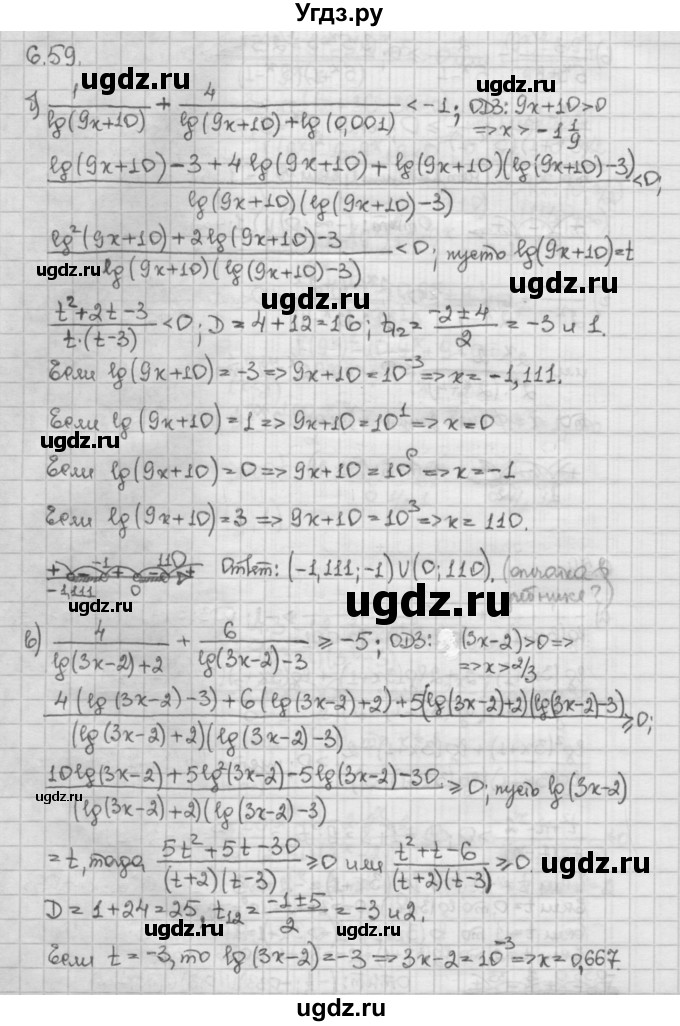 Угдз.ру
6.59.
ugdz.ru ugdz.ru
б) 1/lg(9x+10) + 4/(lg(9x+10)+lg(0,001)) < -1; ОДЗ: 9x+10>0
=> x > -1 1/9
(lg(9x+10)-3+4lg(9x+10)+lg(9x+10)(lg(9x+10)-3))/(lg(9x+10)(lg(9x+10)-3)) < 0;
(lg²(9x+10)+2lg(9x+10)-3)/(lg(9x+10)(lg(9x+10)-3)) < 0; пусть lg(9x+10)=t
ugdz.ru ugdz.ru
ugdz.ru
(t²+2t-3)/(t·(t-3)) < 0; D=4+12=16; t₁₂=(-2±4)/2 = -3 и 1.
Если lg(9x+10)=-3 => 9x+10=10⁻³ => x=-1,111.
ugdz.ru
Если lg(9x+10)=1 => 9x+10=10¹ => x=0
ugdz.ru
Если lg(9x+10)=0 => 9x+10=10⁰ => x=-1
ugdz.ru
Если lg(9x+10)=3 => 9x+10=10³ => x=110.
+ - + - +
-1,111 -1 0 110
Ответ: (-1,111;-1)∪(0;110). (опечатка в
учебнике?)
ugdz.ru
в) 4/(lg(3x-2)+2) + 6/(lg(3x-2)-3) ≥ -5; ОДЗ: (3x-2)>0 =>
=> x>2/3
ugdz.ru
(4(lg(3x-2)-3)+6(lg(3x-2)+2)+5(lg(3x-2)+2)(lg(3x-2)-3))/((lg(3x-2)+2)(lg(3x-2)-3)) ≥ 0;
ugdz.ru
(10lg(3x-2)+5lg²(3x-2)-5lg(3x-2)-30)/((lg(3x-2)+2)(lg(3x-2)-3)) ≥ 0; пусть lg(3x-2)
ugdz.ru
=t, тогда (5t²+5t-30)/((t+2)(t-3)) ≥ 0 или (t²+t-6)/((t+2)(t-3)) ≥ 0
ugdz.ru
D=1+24=25, t₁₂=(-1±5)/2 = -3 и 2.
ugdz.ru ugdz.ru
Если t=-3, то lg(3x-2)=-3 => 3x-2=10⁻³ => x=0,667.
ugdz.ru